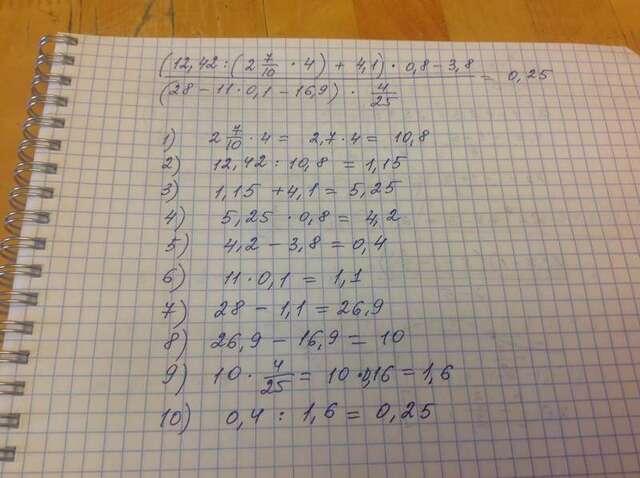 (12,42 : (2 7/10 · 4) + 4,1) · 0,8 - 3,8 = 0,25
(28 - 11 · 0,1 - 16,9) · 4/25
1) 2 7/10 · 4 = 2,7 · 4 = 10,8
2) 12,42 : 10,8 = 1,15
3) 1,15 + 4,1 = 5,25
4) 5,25 · 0,8 = 4,2
5) 4,2 - 3,8 = 0,4
6) 11 · 0,1 = 1,1
7) 28 - 1,1 = 26,9
8) 26,9 - 16,9 = 10
9) 10 · 4/25 = 10 · 0,16 = 1,6
10) 0,4 : 1,6 = 0,25